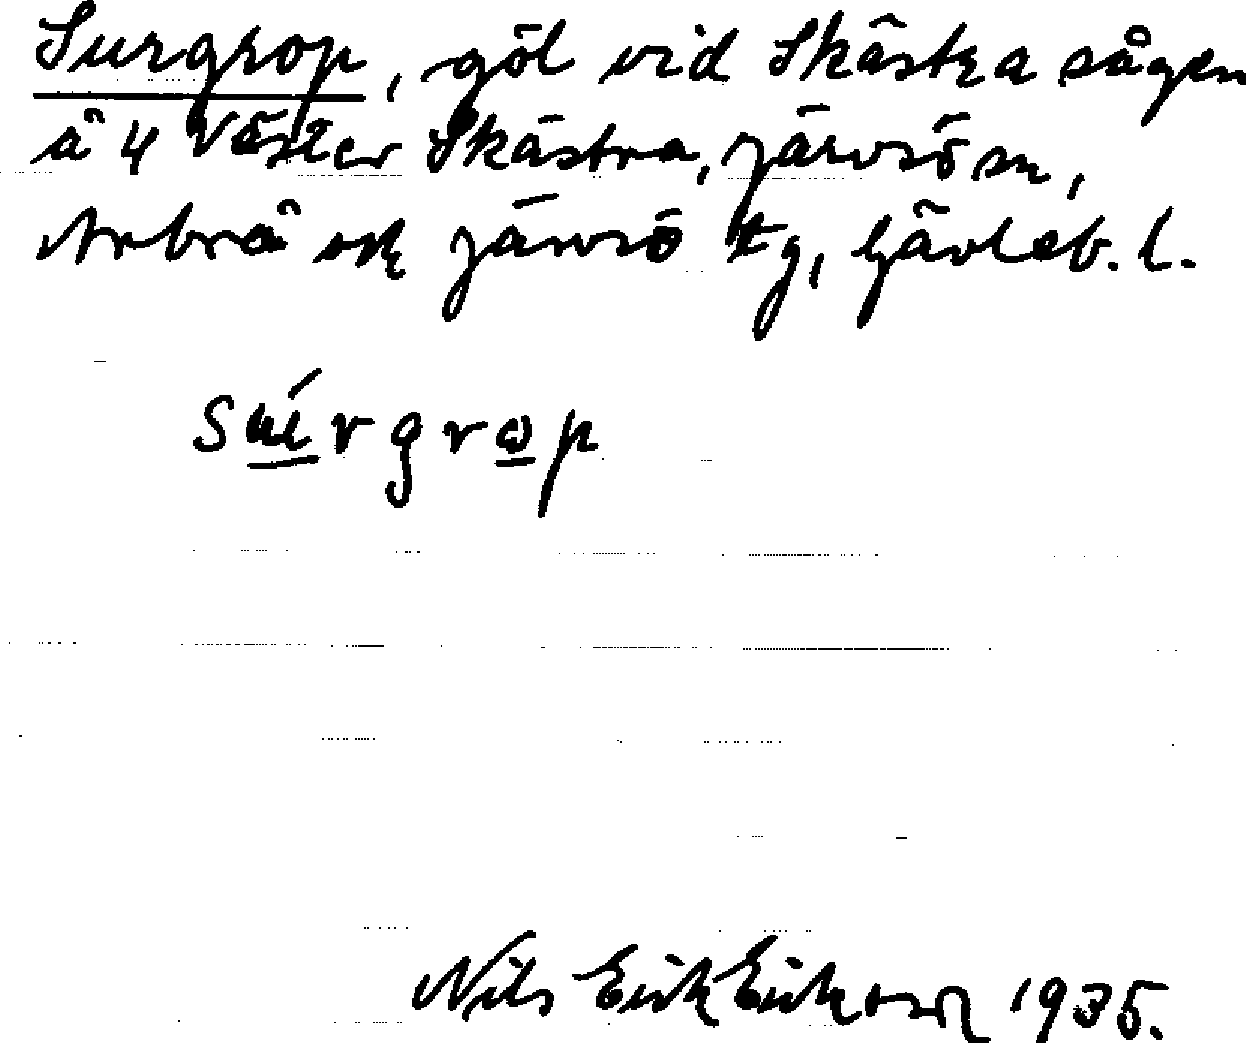 Surgrop, göl vid Skästra sågen
å 4 Väster Skästra, Järvsö sn,
Arbrå ock Järvsö tg, Gävleb. l.
Nils Erik Eriksson 1935.